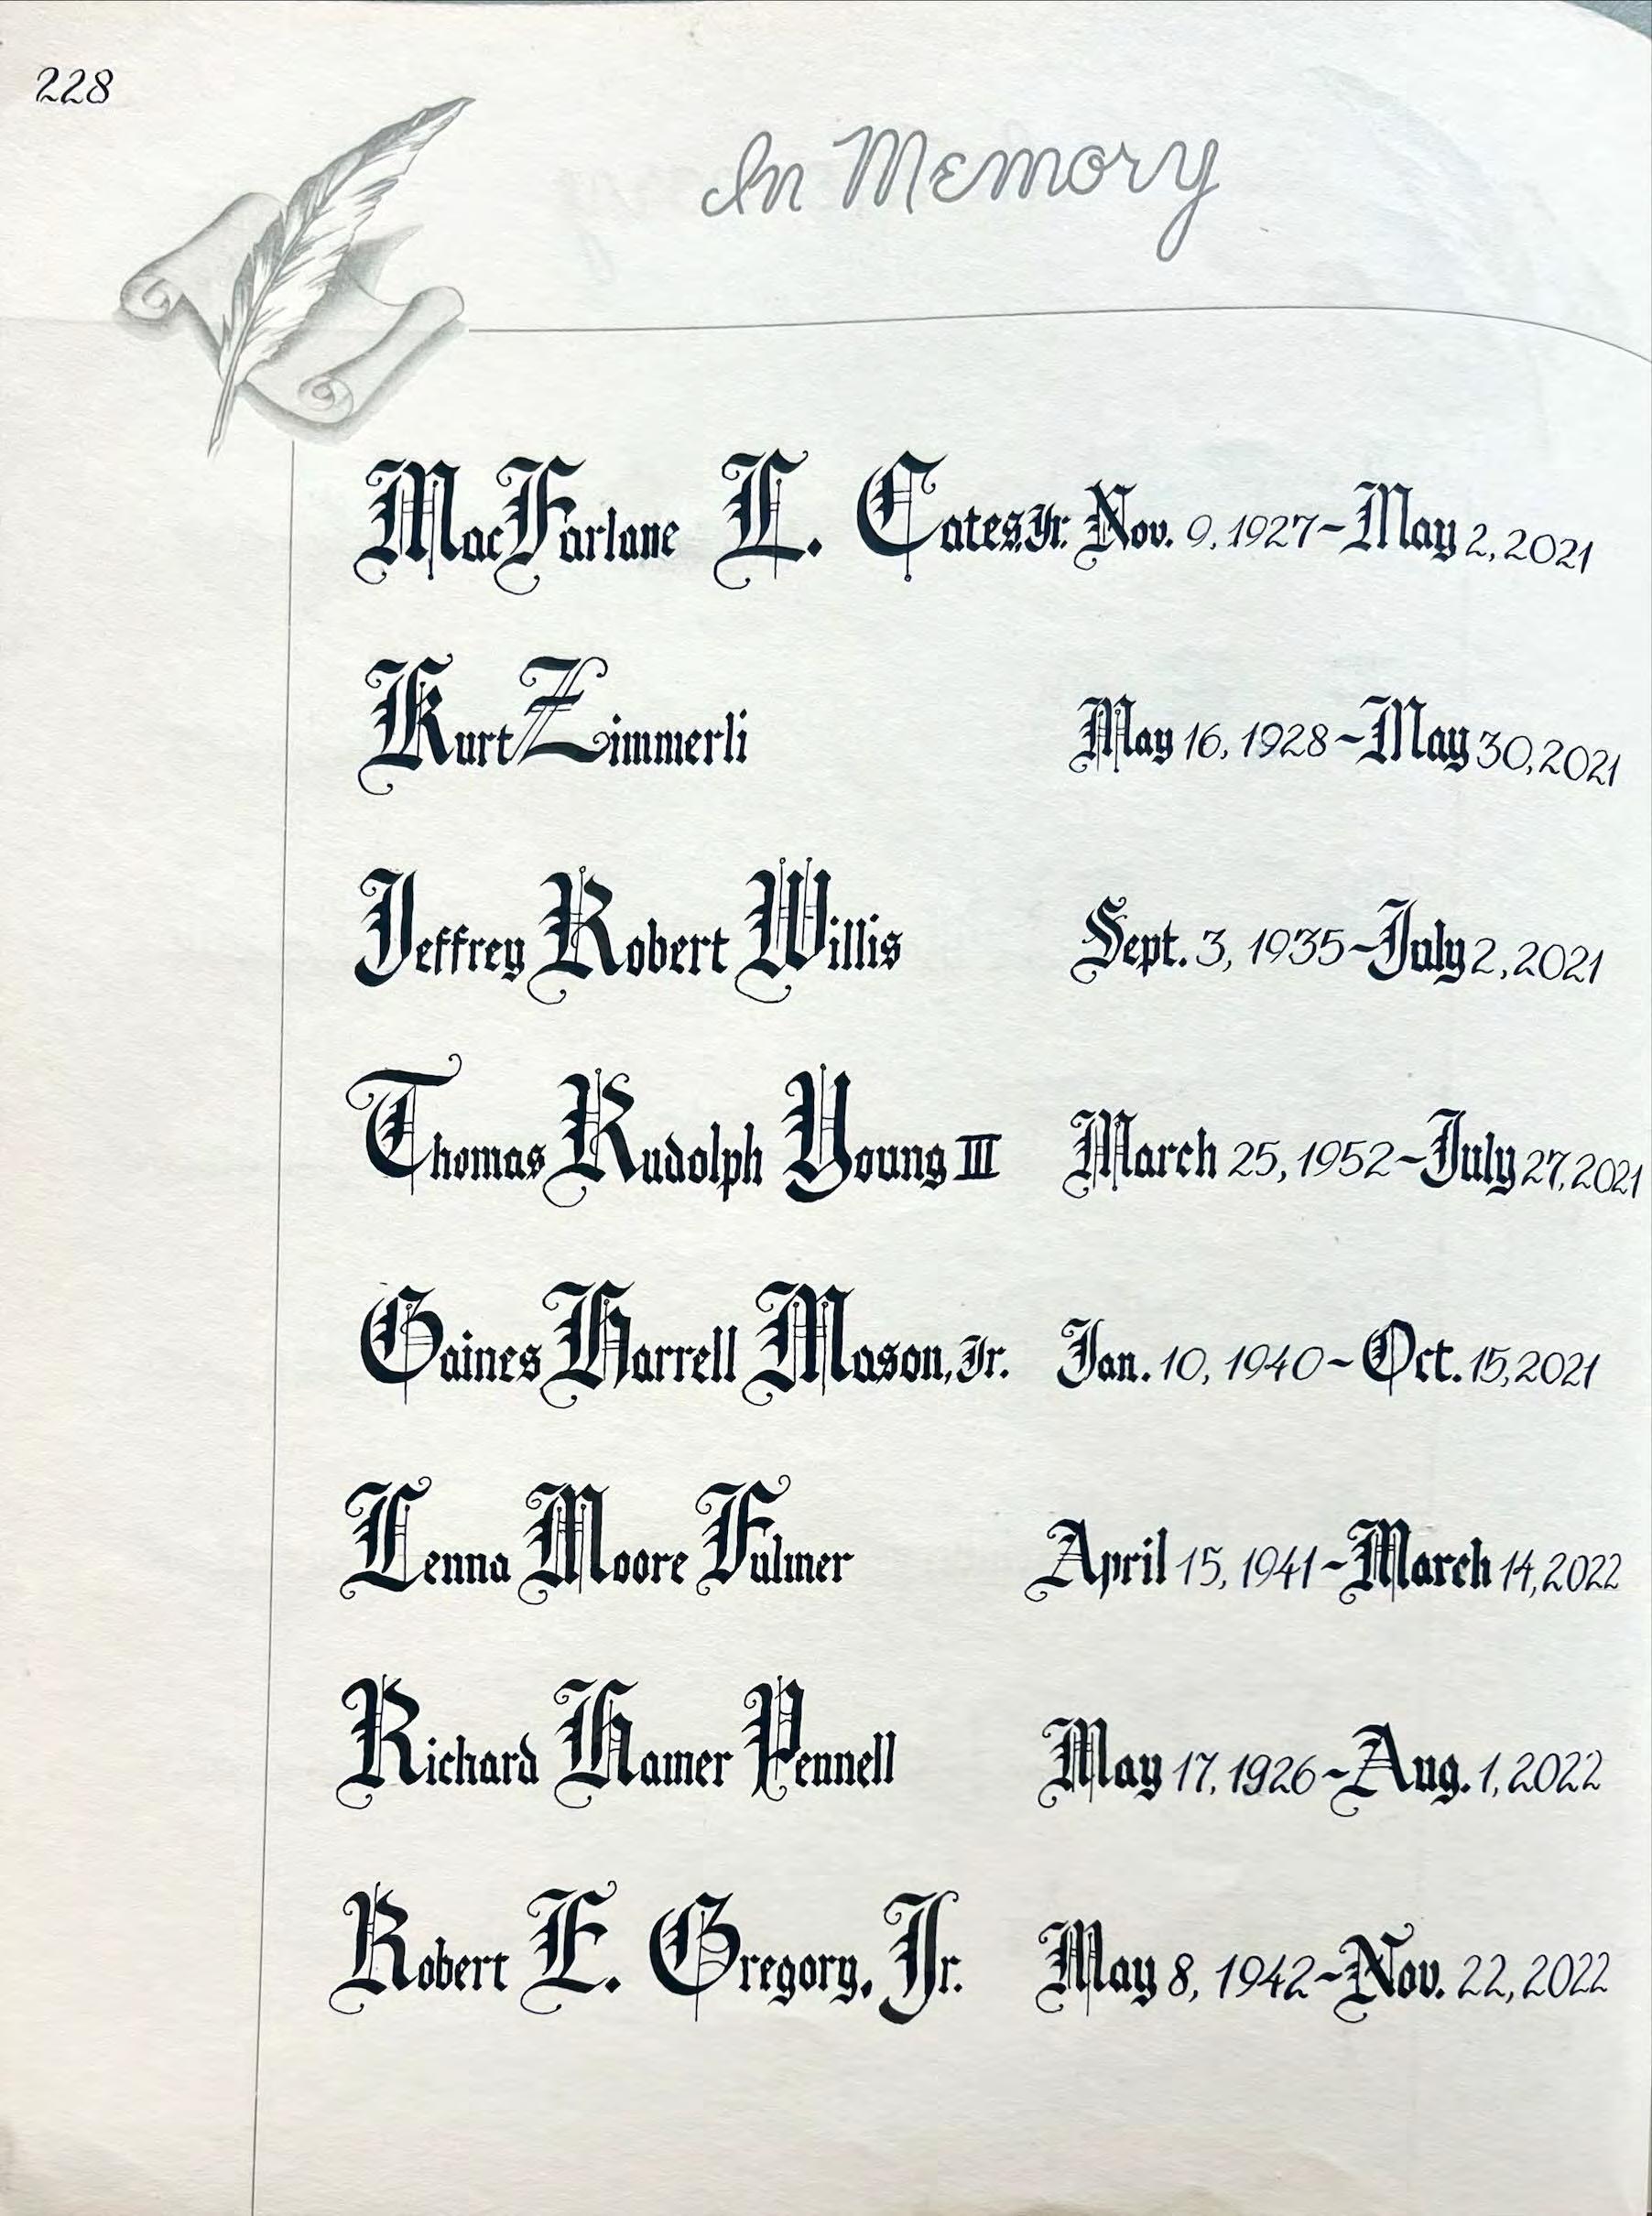 228
In Memory
MacFarlane L. Cates, Jr. Nov. 9, 1927~May 2, 2021
Kurt Zimmerli May 16, 1928~May 30, 2021
Jeffrey Robert Willis Sept. 3, 1935~July 2, 2021
Thomas Rudolph Young III March 25, 1952~July 27, 2021
Gaines Harrell Mason, Jr. Jan. 10, 1940~Oct. 15, 2021
Lenna Moore Fulmer April 15, 1941~March 14, 2022
Richard Hamer Pennell May 17, 1926~Aug. 1, 2022
Robert E. Gregory, Jr. May 8, 1942~Nov. 22, 2022